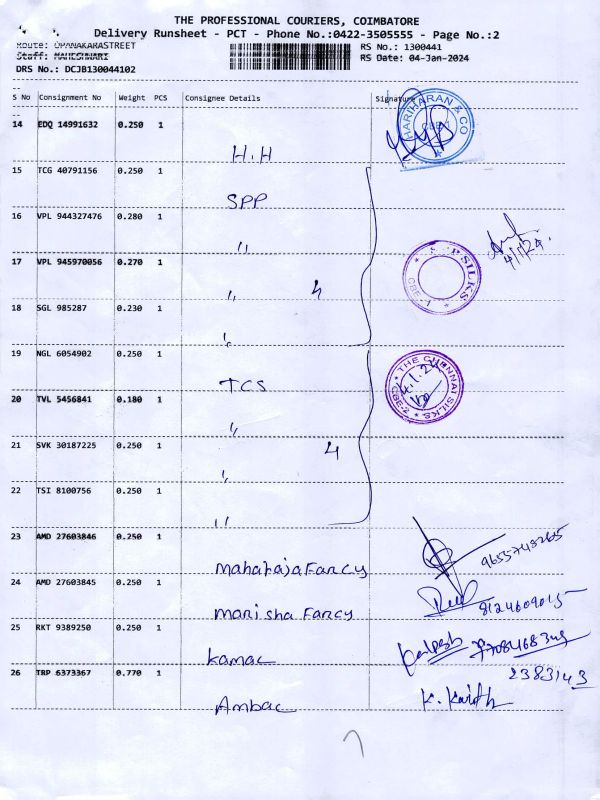 THE PROFESSIONAL COURIERS, COIMBATORE
Delivery Runsheet - PCT - Phone No.:0422-3505555 - Page No.:2
Route: OPANAKARASTREET RS No.: 1300441
Staff: MAHESHWARI RS Date: 04-Jan-2024
DRS No.: DCJB130044102
S No Consignment No Weight PCS Consignee Details Signature
14 EDQ 14991632 0.250 1 H.H HARIHARAN & CO
15 TCG 40791156 0.250 1 SPP
16 VPL 944327476 0.280 1 "
4/1/24
17 VPL 945970056 0.270 1 " 4 SILKS CBE-1
18 SGL 985287 0.230 1 "
19 NGL 6054902 0.250 1 TCS THE CHENNAI SILKS CBE-2 4.1.24
20 TVL 5456841 0.180 1 "
21 SVK 30187225 0.250 1 " 4
22 TSI 8100756 0.250 1 "
23 AMD 27603846 0.250 1 Maharaja Fancy
24 AMD 27603845 0.250 1 Manisha Fancy 8124609015
25 RKT 9389250 0.250 1 Kamal
26 TRP 6373367 0.770 1 Ambal 2383143